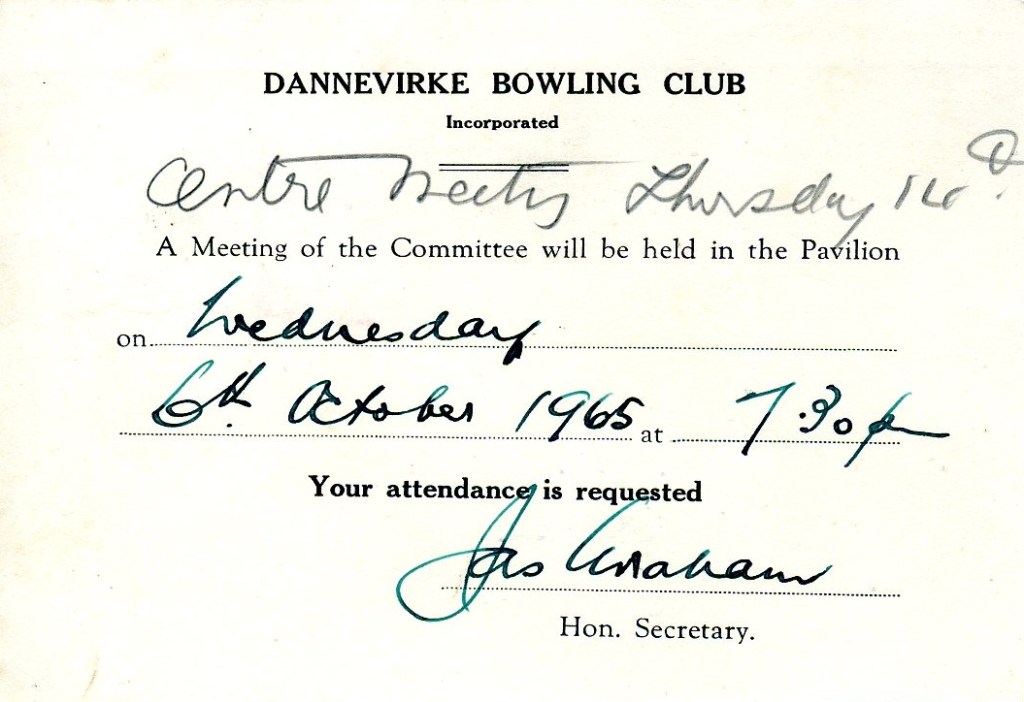 DANNEVIRKE BOWLING CLUB
Incorporated
Centre Meeting Thursday 14
A Meeting of the Committee will be held in the Pavilion
on Wednesday
6th. October 1965 at 7.30 pm
Your attendance is requested
Jas
Hon. Secretary.